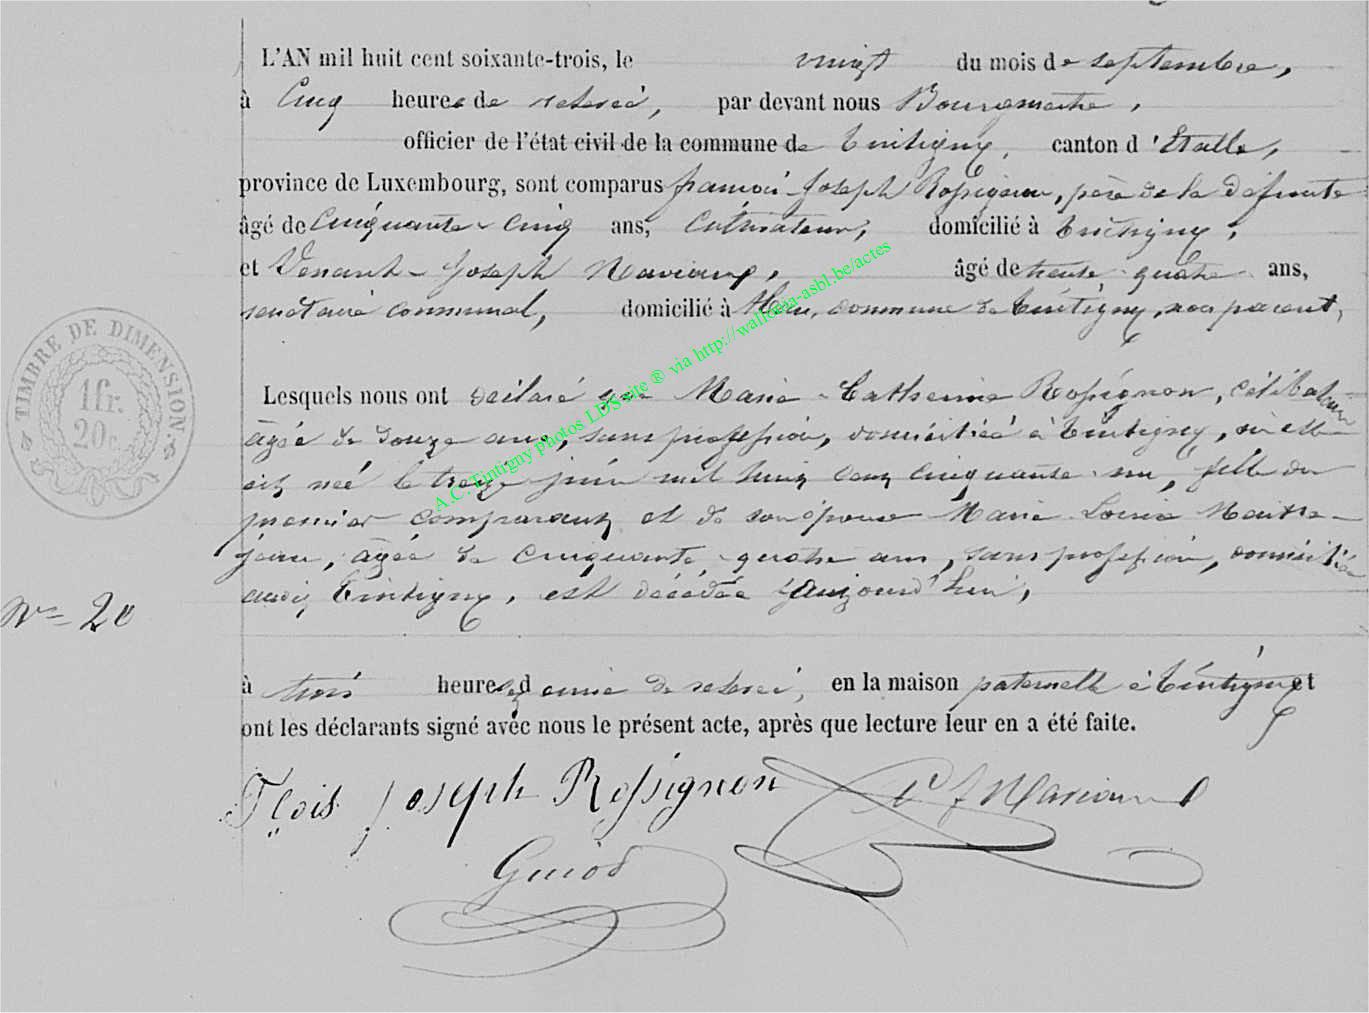 L'AN mil huit cent soixante-trois, le vingt du mois de septembre,
à Cinq heures de relevé, par devant nous Bourgmestre,
officier de l'état civil de la commune de Tintigny, canton d'Etalle,
province de Luxembourg, sont comparus françois Joseph Rossignon, père de la défunte
âgé de Cinquante-cinq ans, Cultivateur, domicilié à Tintigny,
et Venant-Joseph Maviaux, âgé de trente-quatre ans,
secrétaire communal, domicilié à commune de Tintigny, non parent,
Lesquels nous ont déclaré que Marie-Catherine Rossignon, célibataire
âgée de douze ans, sans profession, domiciliée à Tintigny, où elle
est née le treize juin mil huit cent cinquante-un, fille du
premier comparant et de son épouse Marie-Louise Maitre-
jean, âgée de cinquante-quatre ans, sans profession, domiciliée
aussi Tintigny, est décédée aujourd'hui,
N° 20
à trois heures et demie de relevé, en la maison paternelle à Tintigny et
ont les déclarants signé avec nous le présent acte, après que lecture leur en a été faite.
Fçois Joseph Rossignon
Guiot
TIMBRE DE DIMENSION
1 fr.
20 c.
A.C. Tintigny photos LDS site ® via http://wallonia-asbl.be/actes